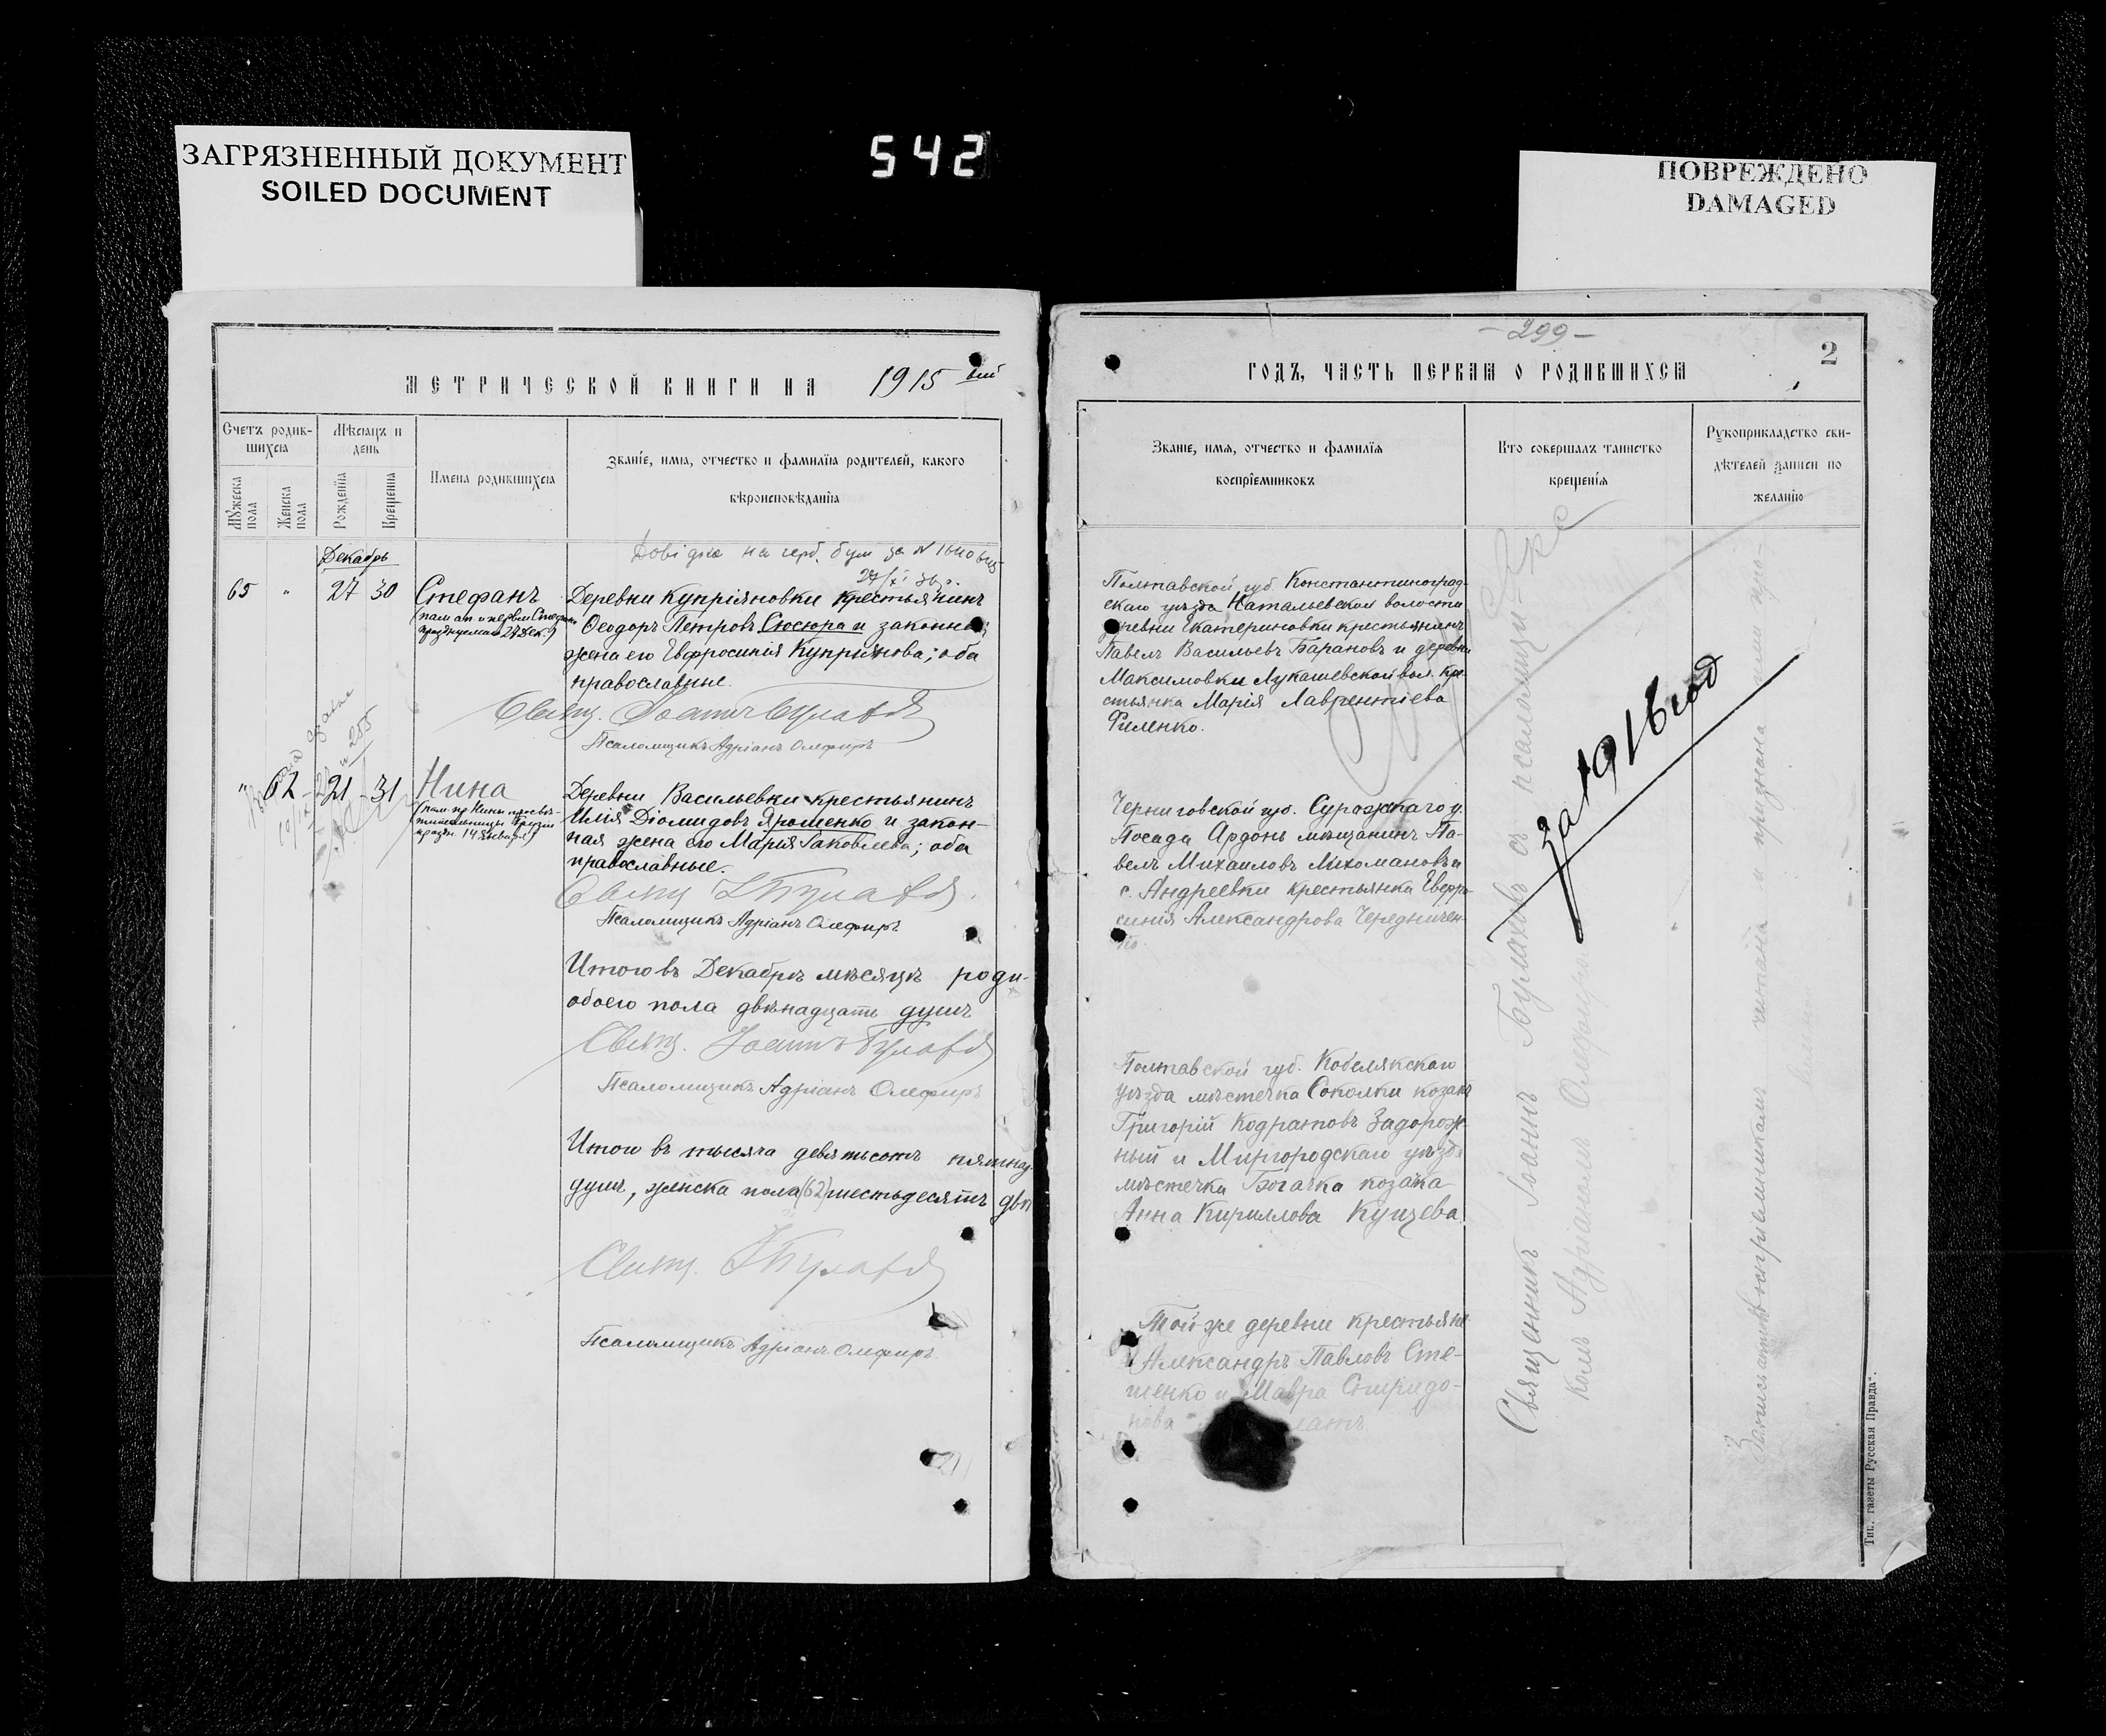 ЗАГРЯЗНЕННЫЙ ДОКУМЕНТ
SOILED DOCUMENT
542
ПОВРЕЖДЕНО
DAMAGED
МЕТРИЧЕСКОЙ КНИГИ НА 1915 ый
Счетъ родив-
шихся
Мѣсяцъ и
день
Имена родившихся
Званіе, имя, отчество и фамилія родителей, какого
вѣроисповѣданія
Мужеска
пола
Женска
пола
Рожденія
Крещенія
Декабрь
Довідка на герб. бум за №
65 " 27 30 Стефанъ
празднуемаго 27 Дек.)
Деревни Купріяновки крестьянинъ
Ѳеодоръ Петровъ Сюсюра и законная
жена его Евфросинія Купріянова; оба
православные.
Свящ. Іоаннъ Булаховъ
Псаломщикъ Адріанъ Олефиръ
" 62 21 31 Нина
(пам. пр. Нины просвѣ-
тительницы Грузіи
праздн. 14 Января)
Деревни Васильевки крестьянинъ
Илія Діомидовъ Ярошенко и закон-
ная жена его Марія Іаковлева; оба
православные.
Свящ. І Булаховъ
Псаломщикъ Адріанъ Олефиръ
Итого въ Декабрѣ мѣсяцѣ роди-
обоего пола двѣнадцать душъ
Свящ. Іоаннъ Булаховъ
Псаломщикъ Адріанъ Олефиръ
Итого въ тысяча девятьсотъ пятнад-
душъ, женска пола (62) шестьдесятъ двѣ
Свящ. І Булаховъ
Псаломщикъ Адріанъ Олефиръ
-299-
2
ГОДЪ, ЧАСТЬ ПЕРВАЯ О РОДИВШИХСЯ
Званіе, имя, отчество и фамилія
воспріемниковъ
Кто совершалъ таинство
крещенія
Рукоприкладство сви-
дѣтелей записи по
желанію
Полтавской губ. Константиноград-
скаго уѣзда Натальевской волости
деревни Екатериновки крестьянинъ
Павелъ Васильевъ Барановъ и деревни
Максимовки Лукашевской вол. кре-
стьянка Марія Лаврентіева
Филенко.
Черниговской губ. Суражскаго у.
Посада Ардонь мѣщанинъ Па-
велъ Михаиловъ Лихомановъ и
с. Андреевки крестьянка Евфро-
синія Александрова Чередничен-
ко.
Полтавской губ. Кобелякскаго
уѣзда мѣстечка Соколки козакъ
Григорій Кодратовъ Задорож-
ный и Миргородскаго уѣзда
мѣстечка Богачка козачка
Анна Кириллова Куцева.
Той же деревни крестьяне
Александръ Павловъ Сте-
шенко и Мавра Спиридо-
нова
Священникъ Іоаннъ Булаховъ съ псаломщи-
комъ Адріаномъ Олефиромъ
за 1916 год
Запись воспріемниками читана и признана ими
Тип. газеты Русская Правда".